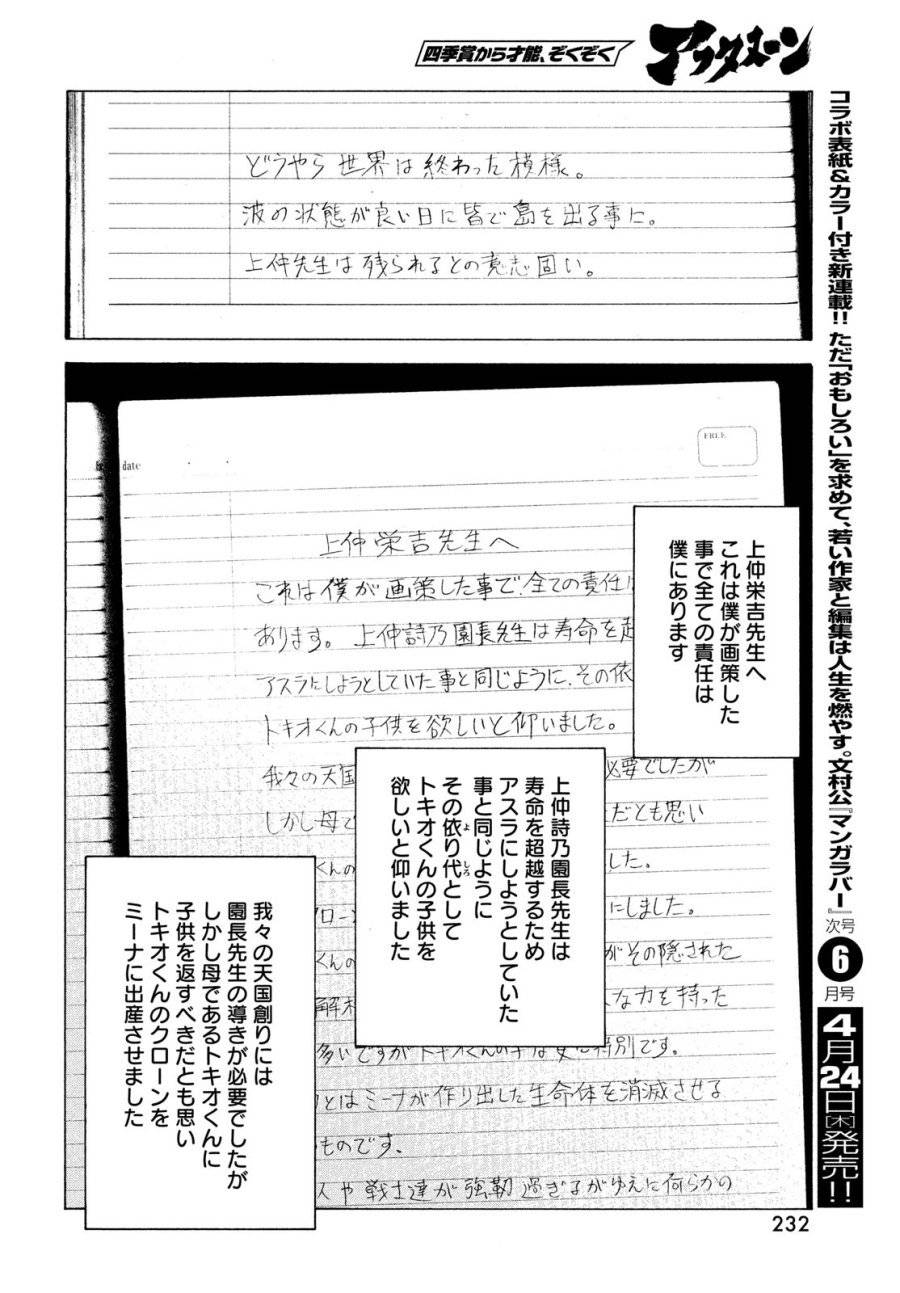 四季賞から才能、ぞくぞく
アフタヌーン
コラボ表紙&カラー付き新連載!! ただ「おもしろい」を求めて、若い作家と編集は人生を燃やす。文村公『マンガラバー』次号6月号4月24日[木]発売!!
どうやら世界は終わった模様。
波の状態が良い日に皆で島を出る事に。
上仲先生は残られるとの意志固い。
date
FREE
上仲栄吉先生へ
これは僕が画策した事で、全ての責任は
あります。上仲詩乃園長先生は寿命を超
アスラにしようとしていた事と同じように、その依
トキオくんの子供を欲しいと仰いました。
我々の天国
必要でしたが
しかし母で
だとも思い
くんの
した。
ローン
にしました。
くんの
がその隠された
解
な力を持った
多いですがトキオくんの子は更に特別です。
とはミーナが作り出した生命体を消滅させる
ものです。
人や戦士達が強靭過ぎるがゆえに何らかの
上仲栄吉先生へ
これは僕が画策した
事で全ての責任は
僕にあります
上仲詩乃園長先生は
寿命を超越するため
アスラにしようとしていた
事と同じように
その依り代として
よ
しろ
トキオくんの子供を
欲しいと仰いました
我々の天国創りには
園長先生の導きが必要でしたが
しかし母であるトキオくんに
子供を返すべきだとも思い
トキオくんのクローンを
ミーナに出産させました
232